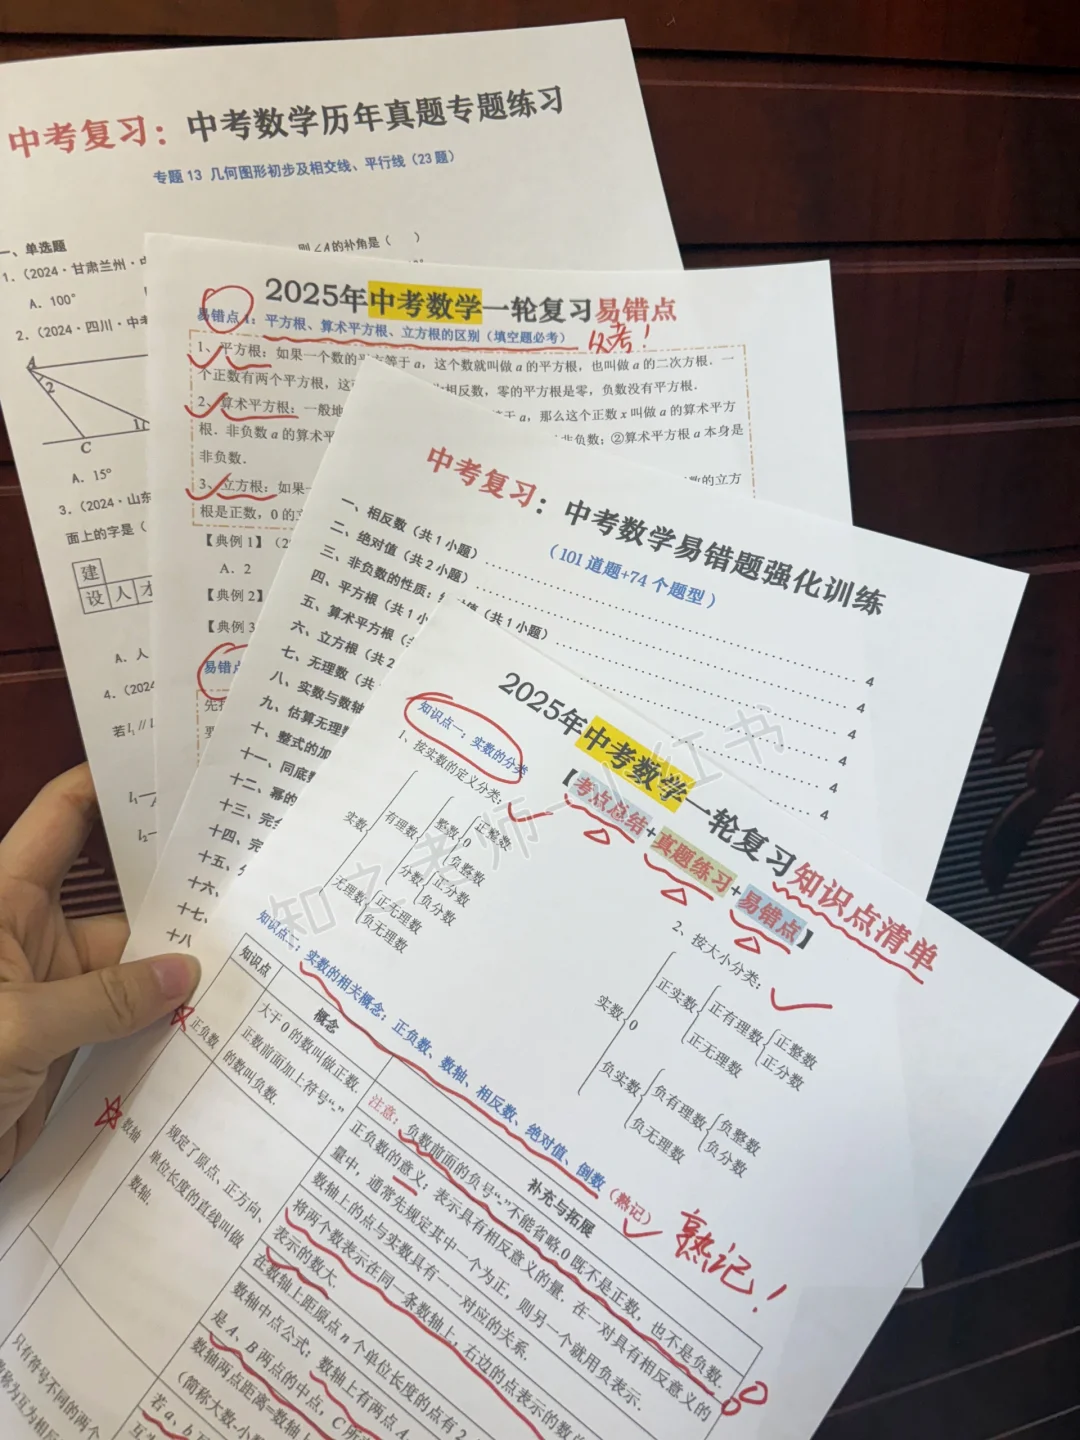 中考复习：中考数学历年真题专题练习
专题 13 几何图形初步及相交线、平行线（23 题）
一、单选题
1.（2024·甘肃兰州·中
则∠A的补角是（ ）
A. 100°
2.（2024·四川·中考
A
2
1
C
A. 15°
3.（2024·山东
面上的字是（
建
设 人 才
A. 人
4.（2024
若 l₁ // l
l₁
l₂
2025年中考数学一轮复习易错点
易错点 1：平方根、算术平方根、立方根的区别（填空题必考）
必考！
1、平方根：如果一个数的平方等于 a，这个数就叫做 a 的平方根，也叫做 a 的二次方根．一
个正数有两个平方根，这 相反数，零的平方根是零，负数没有平方根．
2、算术平方根：一般地 于 a，那么这个正数 x 叫做 a 的算术平方
根．非负数 a 的算术平 非负数；②算术平方根 a 本身是
非负数．
3、立方根：如果一 数的立方
根是正数，0 的立
【典例 1】（2
A．2
【典例 2】
【典例 3
易错点
中考复习：中考数学易错题强化训练
（101 道题+74 个题型）
一、相反数（共 1 小题） 4
二、绝对值（共 2 小题） 4
三、非负数的性质：绝对值（共 1 小题） 4
四、平方根（共 1 小 4
五、算术平方根（共 4
六、立方根（共 2 4
七、无理数（共
八、实数与数轴
九、估算无理数
十、整式的加
十一、同底数
十二、幂的
十三、完全
十四、完
十五、
十六、
十七、
十八
2025年中考数学一轮复习知识点清单
【考点总结+真题练习+易错点】
知识点一：实数的分类
1、按实数的定义分类：
实数 有理数 整数 正整数
0
负整数
分数 正分数
负分数
无理数 正无理数
负无理数
2、按大小分类：
实数 正实数 正有理数 正整数
正分数
正无理数
0
负实数 负有理数 负整数
负分数
负无理数
知识点二：实数的相关概念：正负数、数轴、相反数、绝对值、倒数（熟记）
熟记！
知识点 概念 补充与拓展
正负数
大于 0 的数叫做正数．
正数前面加上符号“-”
的数叫负数．
注意：负数前面的负号“-”不能省略.0 既不是正数，也不是负数．
正负数的意义：表示具有相反意义的量．在一对具有相反意义的
量中，通常先规定其中一个为正，则另一个就用负表示．
数轴
规定了原点、正方向、
单位长度的直线叫做
数轴．
数轴上的点与实数具有一一对应的关系．
将两个数表示在同一条数轴上，右边的点表示的数
表示的数大．
在数轴上距原点 n 个单位长度的点有 2
数轴中点公式：数轴上有两点 A
是 A、B 两点的中点，C 所
数轴两点距离=数轴上
（简称大数-小
只有符号不同的两个
称为互为相反
若 a、b 互
互为
知之老师—小红书